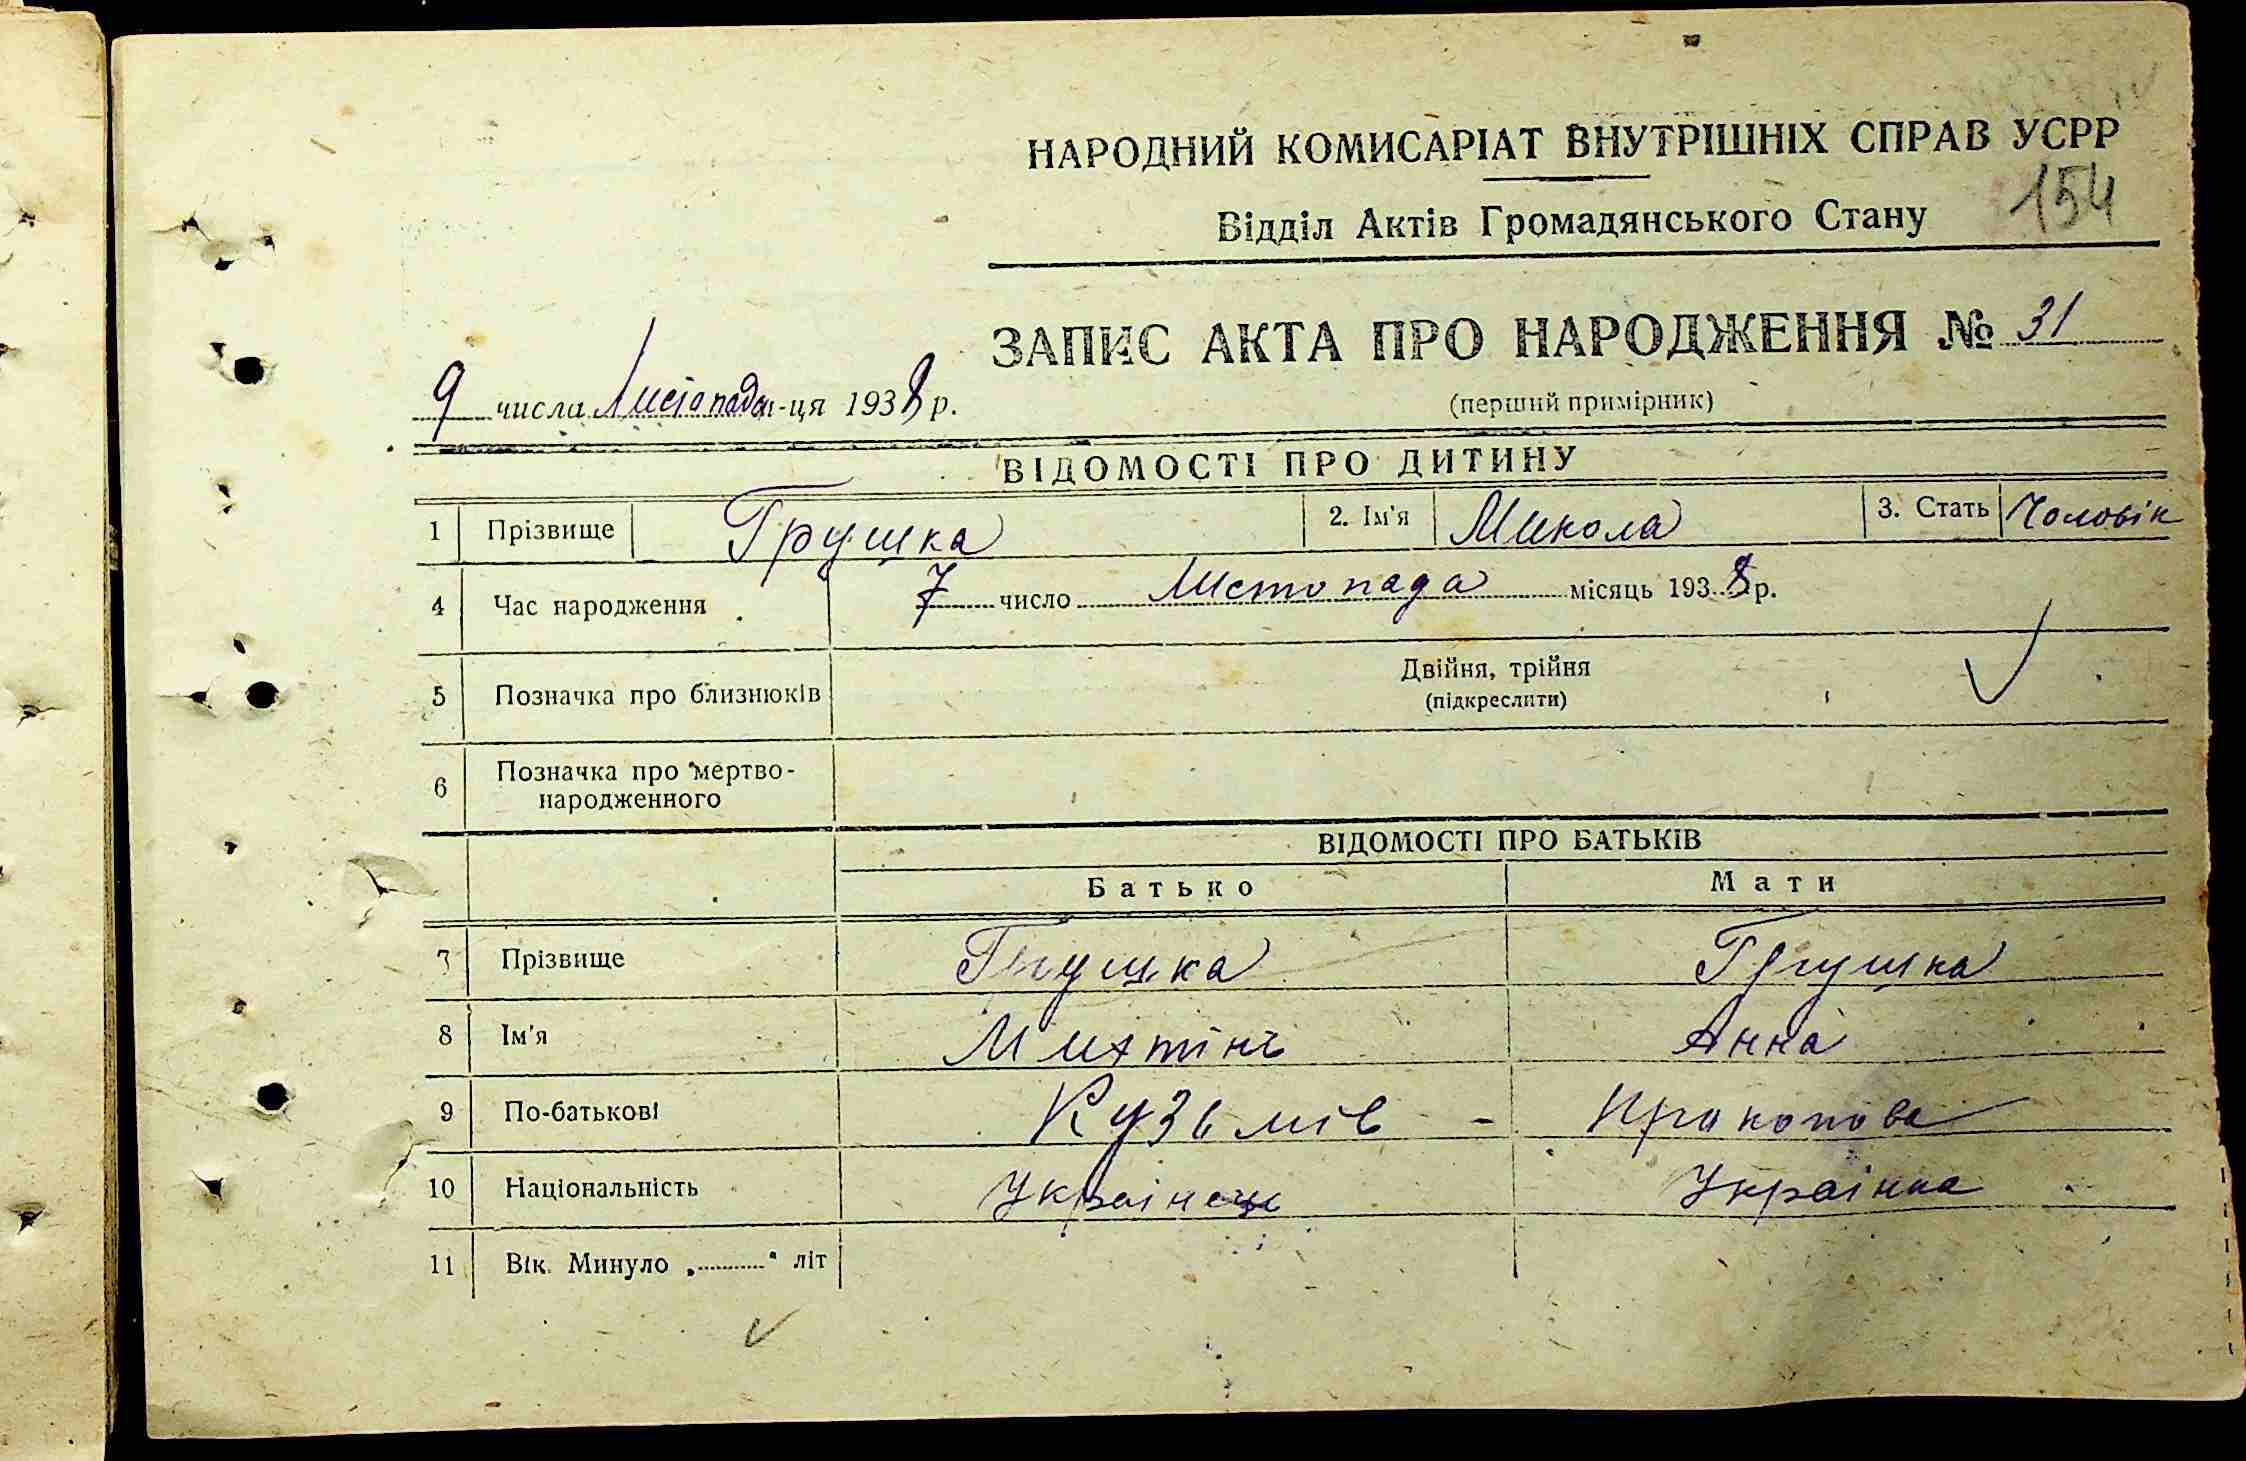 НАРОДНИЙ КОМИСАРІАТ ВНУТРІШНІХ СПРАВ УСРР
154
Відділ Актів Громадянського Стану
ЗАПИС АКТА ПРО НАРОДЖЕННЯ № 31
9 числа Листопада м-ця 1938 р.
(перший примірник)
ВІДОМОСТІ ПРО ДИТИНУ
1 Прізвище Грушка 2. Ім'я Микола 3. Стать Чоловік
4 Час народження 7 число Листопада місяць 1938 р.
5 Позначка про близнюків Двійня, трійня
(підкреслити)
6 Позначка про мертво-
народженного
ВІДОМОСТІ ПРО БАТЬКІВ
Батько Мати
7 Прізвище Грушка Грушка
8 Ім'я Анна
9 По-батькові Кузьмів - Прокопова
10 Національність Українець Українка
11 Вік. Минуло „ “ літ